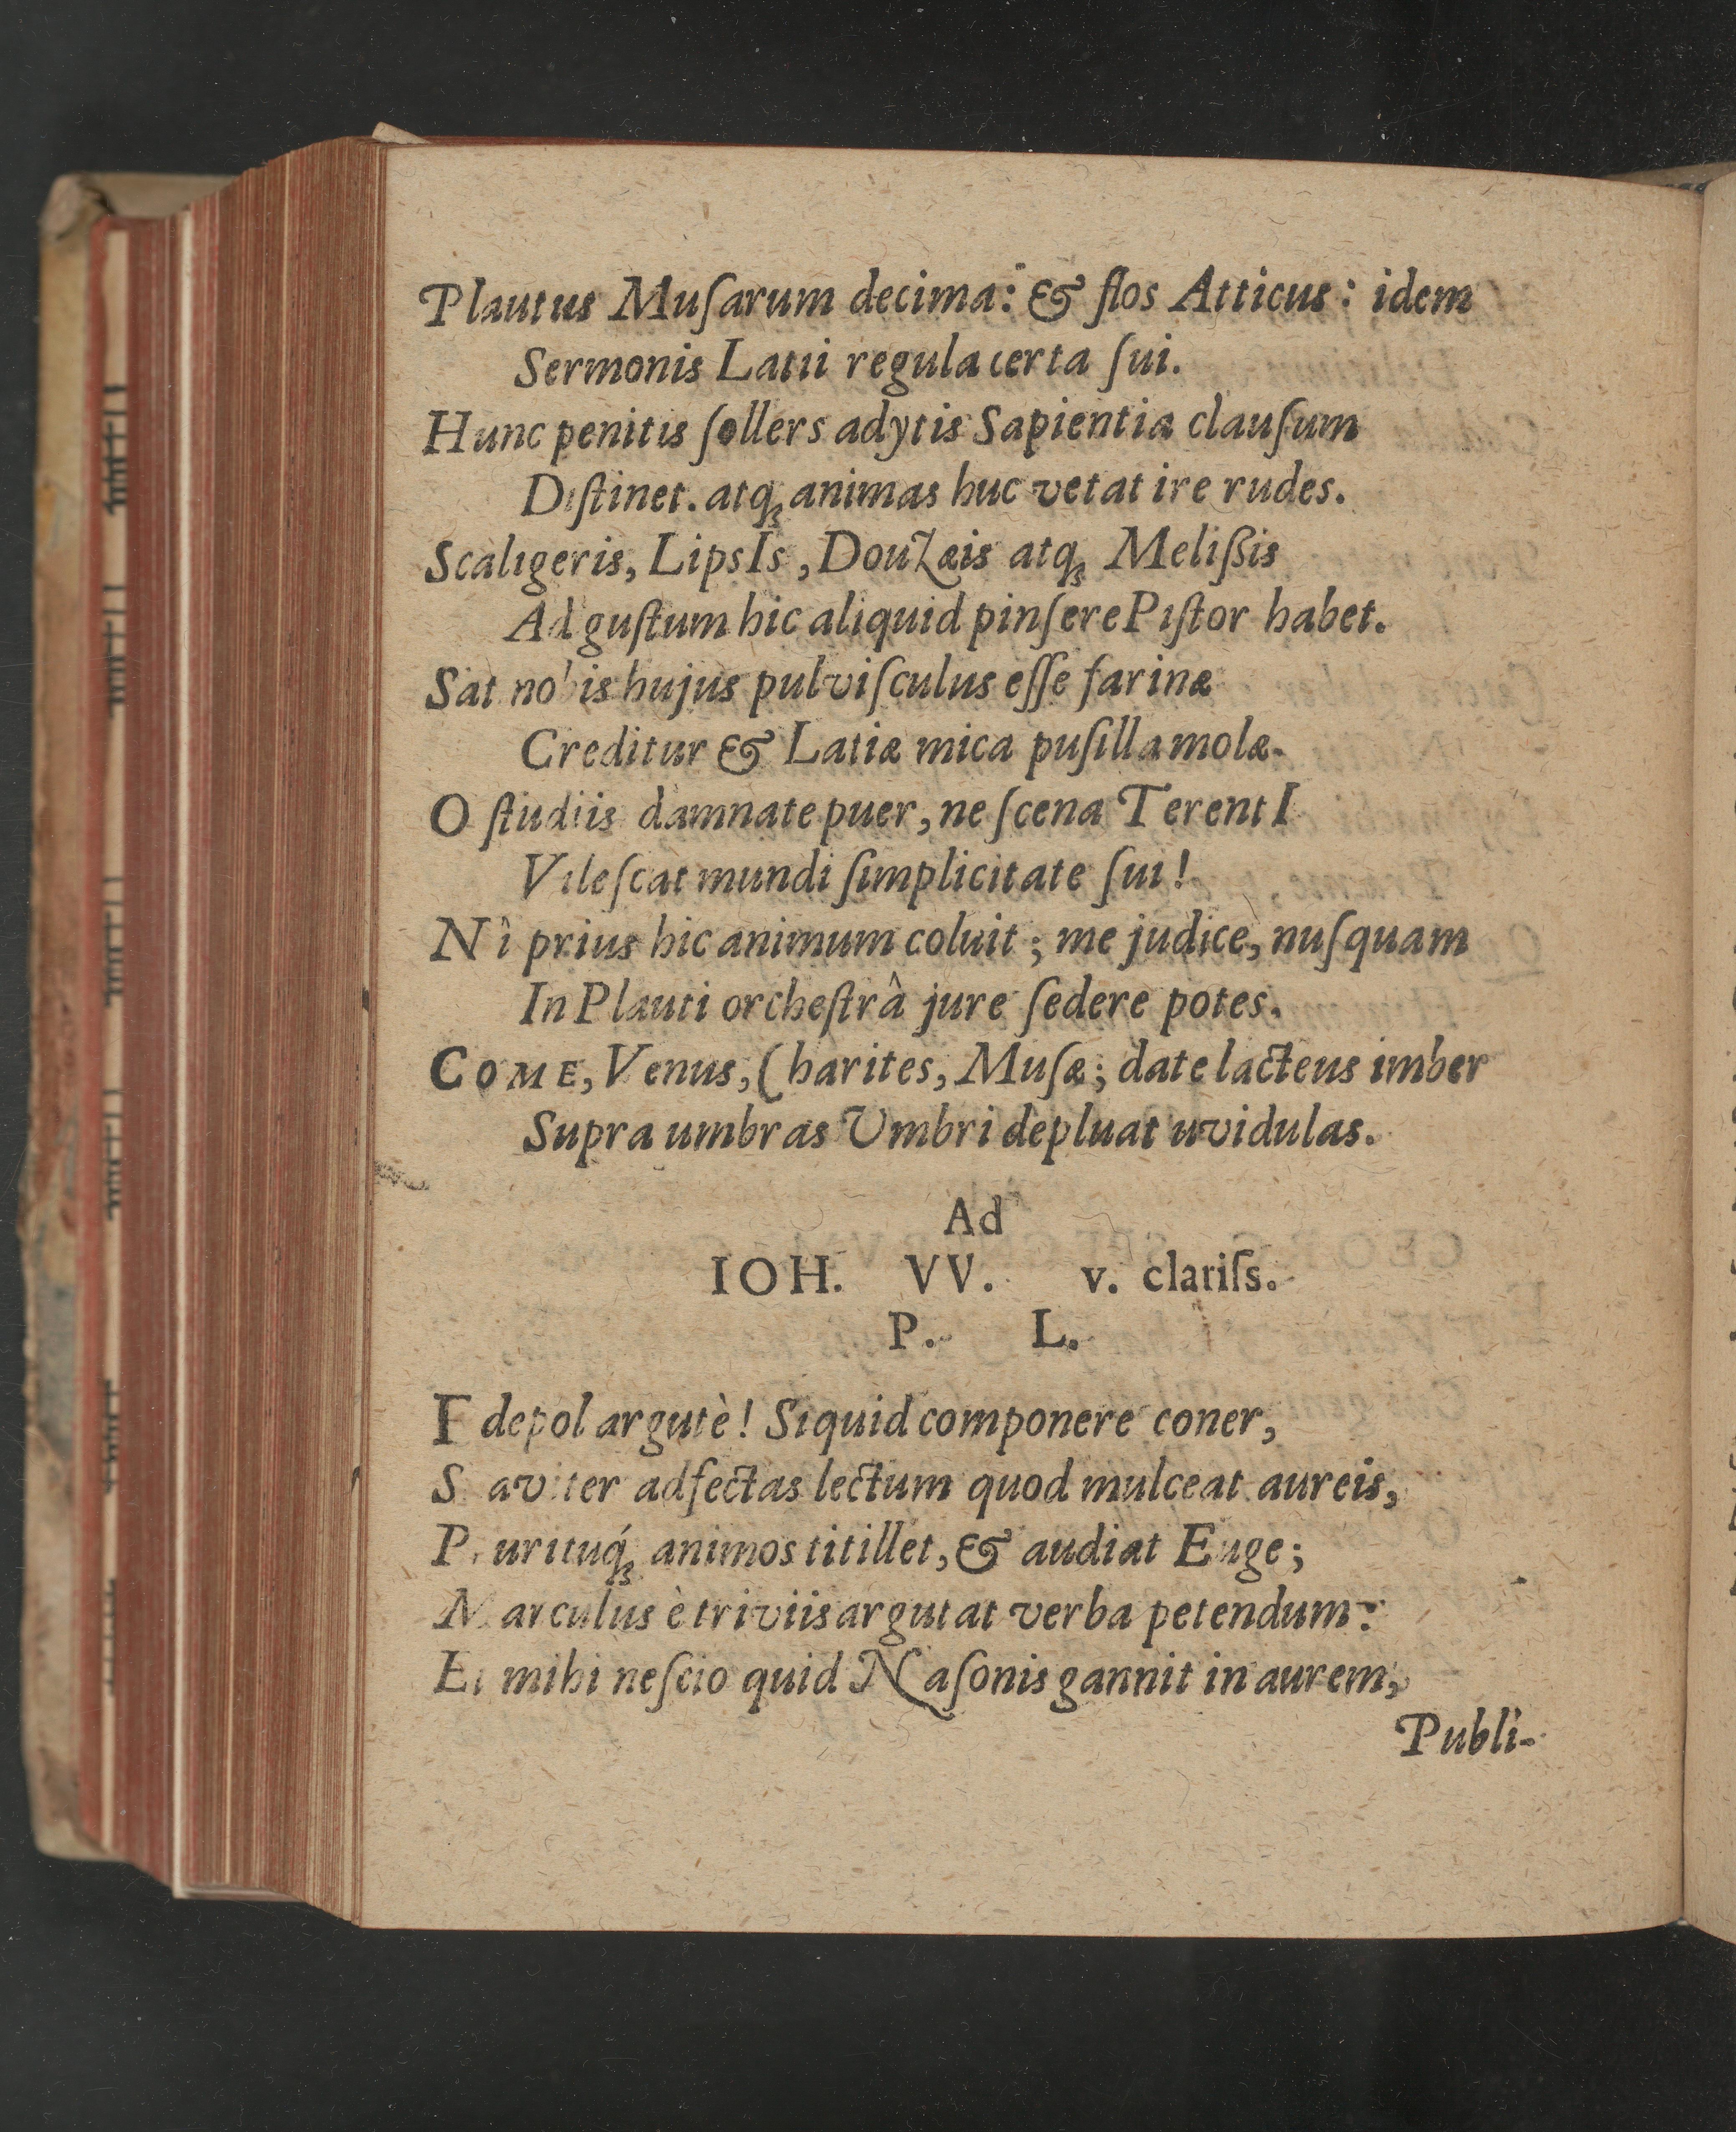 Plautus Muſarum decima: & flos Atticus: idem
Sermonis Latii regula certa ſui.
Hunc penitis ſollers adytis Sapientia clauſum
Diſtinet. atq́ue animas huc vetat ire rudes.
Scaligeris, LipsIs, Douzæis atq; Melißis
Ad guſtum hic aliquid pinſere Piſtor habet.
Sat nobis hujus pulviſculus eſſe farinæ
Creditur & Latiæ mica puſilla molæ.
O ſtudiis damnate puer, ne ſcena TerentI
Vileſcat mundi ſimplicitate ſui!
Nî prius hic animum coluit; me judice, nuſquam
In Plauti orcheſtrâ jure ſedere potes.
COME, Venus, Charites, Muſæ; date lacteus imber
Supra umbras Umbri depluat uvidulas.
Ad
IOH. VV. v. clariſs.
P. L.
Edepol argutè! Siquid componere coner,
Saviter adfectas lectum quod mulceat aureis,
Prurituq́; animos titillet, & audiat Euge;
Marculus è triviis argutat verba petendum:
Et mihi neſcio quid Naſonis gannit in aurem,
Publi-